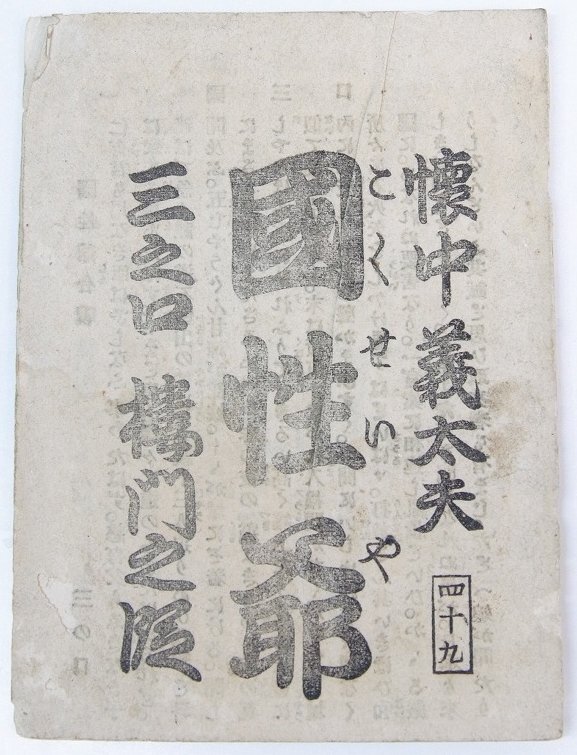 懐中義太夫
四十九
こくせいや
國性爺
三之口 楼門之段